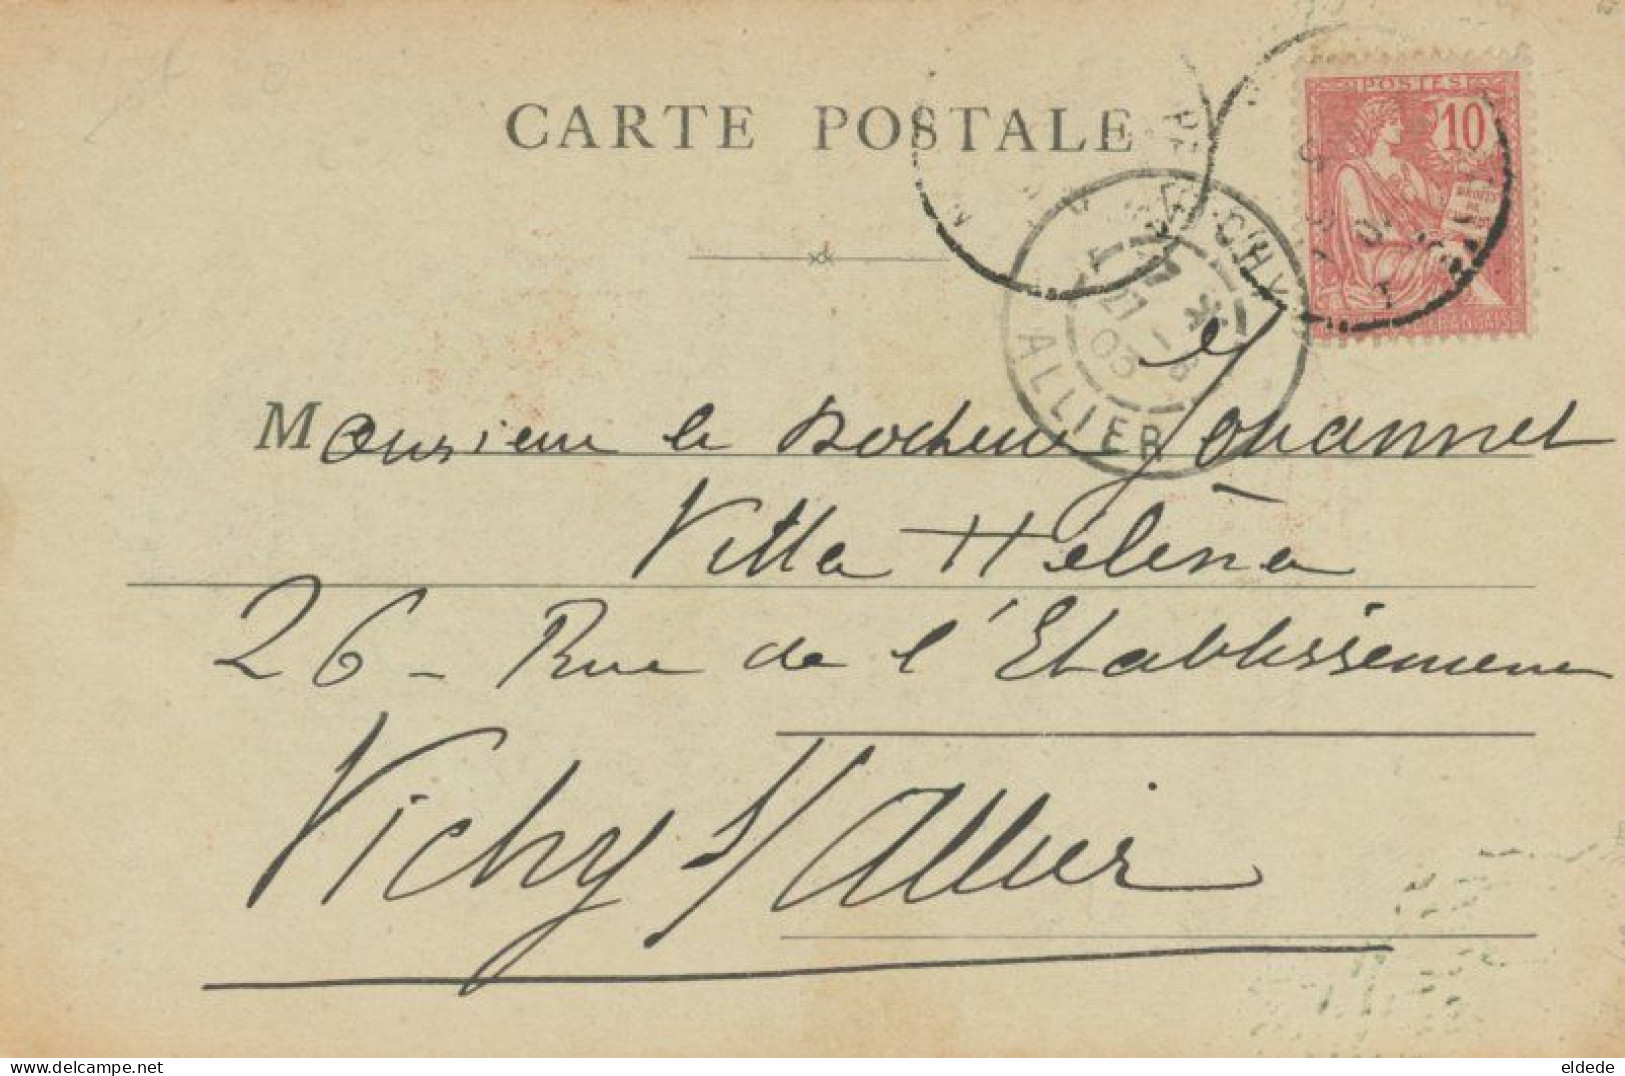 CARTE POSTALE
POSTES
10
VICHY
ALLIER
21
03
Monsieur le Docteur Jouannet
Villa Héléna
26 - Rue de l'Etablissement
Vichy s/Allier
eldede